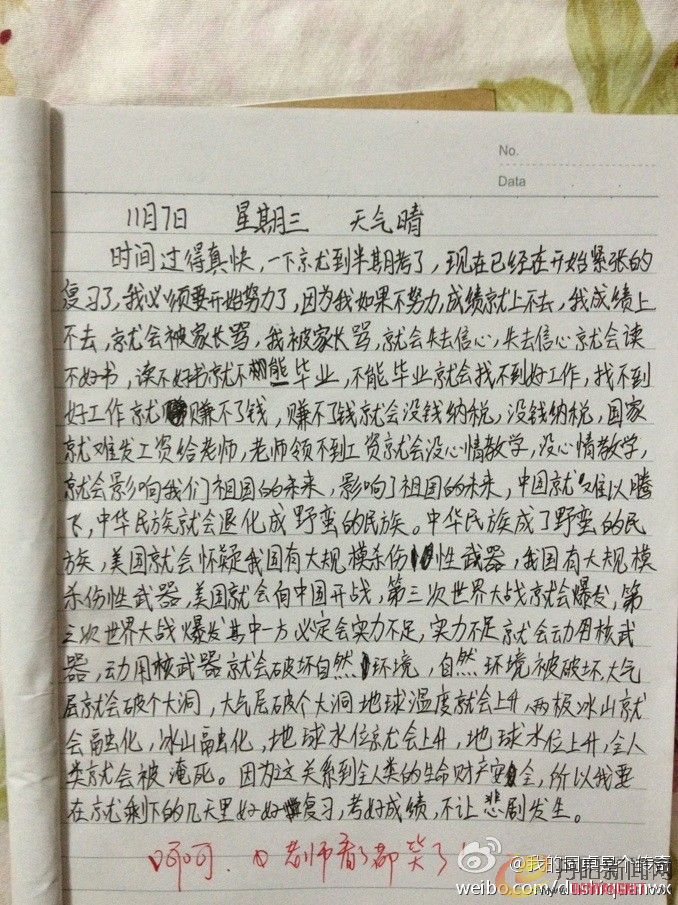 No.
Data
11月7日 星期三 天气晴
时间过得真快,一下就到半期考了,现在已经在开始紧张的
复习了,我必须要开始努力了,因为我如果不努力,成绩就上不去,我成绩上
不去,就会被家长骂,我被家长骂,就会失去信心,失去信心就会读
不好书,读不好书就不能毕业,不能毕业就会找不到好工作,找不到
好工作就赚不了钱,赚不了钱就会没钱纳税,没钱纳税,国家
就难发工资给老师,老师领不到工资就会没心情教学,没心情教学,
就会影响我们祖国的未来,影响了祖国的未来,中国就难以腾
飞,中华民族就会退化成野蛮的民族。中华民族成了野蛮的民
族,美国就会怀疑我国有大规模杀伤性武器,我国有大规模
杀伤性武器,美国就会向中国开战,第三次世界大战就会爆发,第
三次世界大战爆发其中一方必定会实力不足,实力不足就会动用核武
器,动用核武器就会破坏自然环境,自然环境被破坏,大气
层就会破个大洞,大气层破个大洞地球温度就会上升,两极冰山就
会融化,冰山融化,地球水位就会上升,地球水位上升,全人
类就会被淹死。因为这关系到全人类的生命财产安全,所以我要
在就剩下的几天里好好复习,考好成绩,不让悲剧发生。
呵呵,老师看了都笑了
weibo.com/dushiquanwx